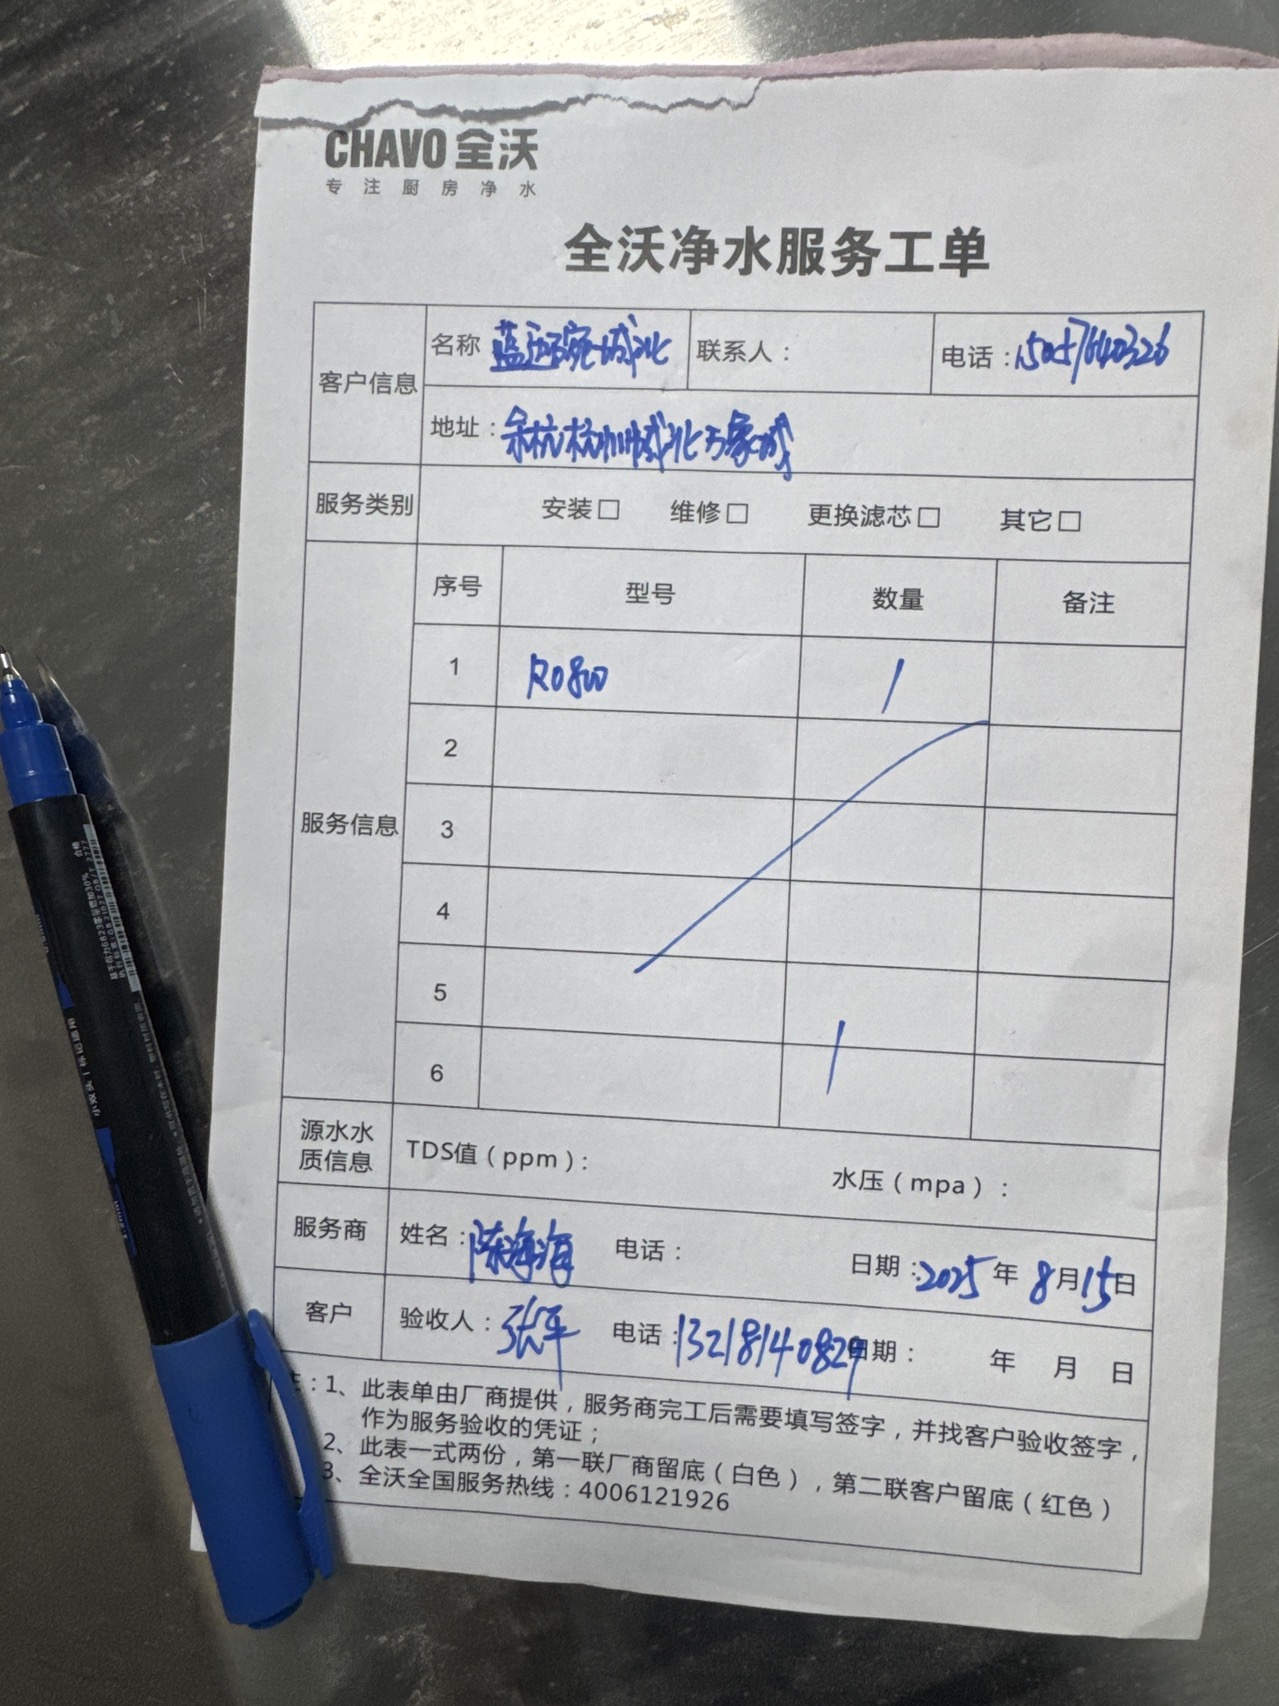 CHAVO 全沃
专注厨房净水
全沃净水服务工单
客户信息
名称 城北 联系人： 电话：15057640326
地址：余杭杭州城北万象城
服务类别 安装□ 维修□ 更换滤芯□ 其它□
服务信息
序号 型号 数量 备注
1 RO800 1
2
3
4
5
6
源水水质信息 TDS值（ppm）： 水压（mpa）：
服务商 姓名：陈海海 电话： 日期：2025年 8月15日
客户 验收人：张平 电话：13218140829 日期： 年 月 日
：1、此表单由厂商提供，服务商完工后需要填写签字，并找客户验收签字，
作为服务验收的凭证；
2、此表一式两份，第一联厂商留底（白色），第二联客户留底（红色）
3、全沃全国服务热线：4006121926